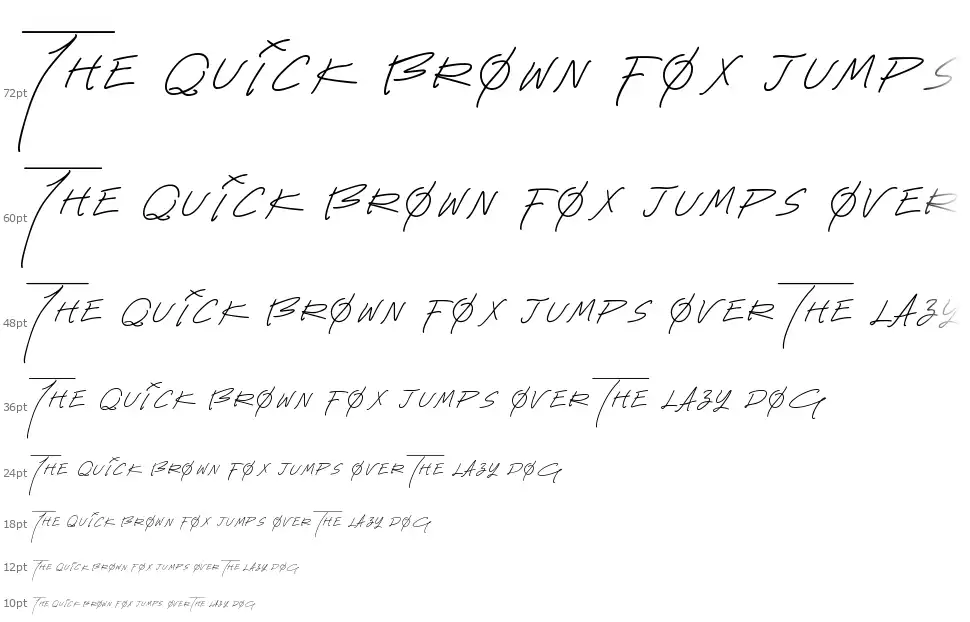 72pt THE QUICK BRØWN FØX JUMPS
60pt THE QUICK BRØWN FØX JUMPS ØVER
48pt THE QUICK BRØWN FØX JUMPS ØVER THE LAZY
36pt THE QUICK BRØWN FØX JUMPS ØVER THE LAZY DØG
24pt THE QUICK BRØWN FØX JUMPS ØVER THE LAZY DØG
18pt THE QUICK BRØWN FØX JUMPS ØVER THE LAZY DØG
12pt THE QUICK BRØWN FØX JUMPS ØVER THE LAZY DØG
10pt THE QUICK BRØWN FØX JUMPS ØVER THE LAZY DØG